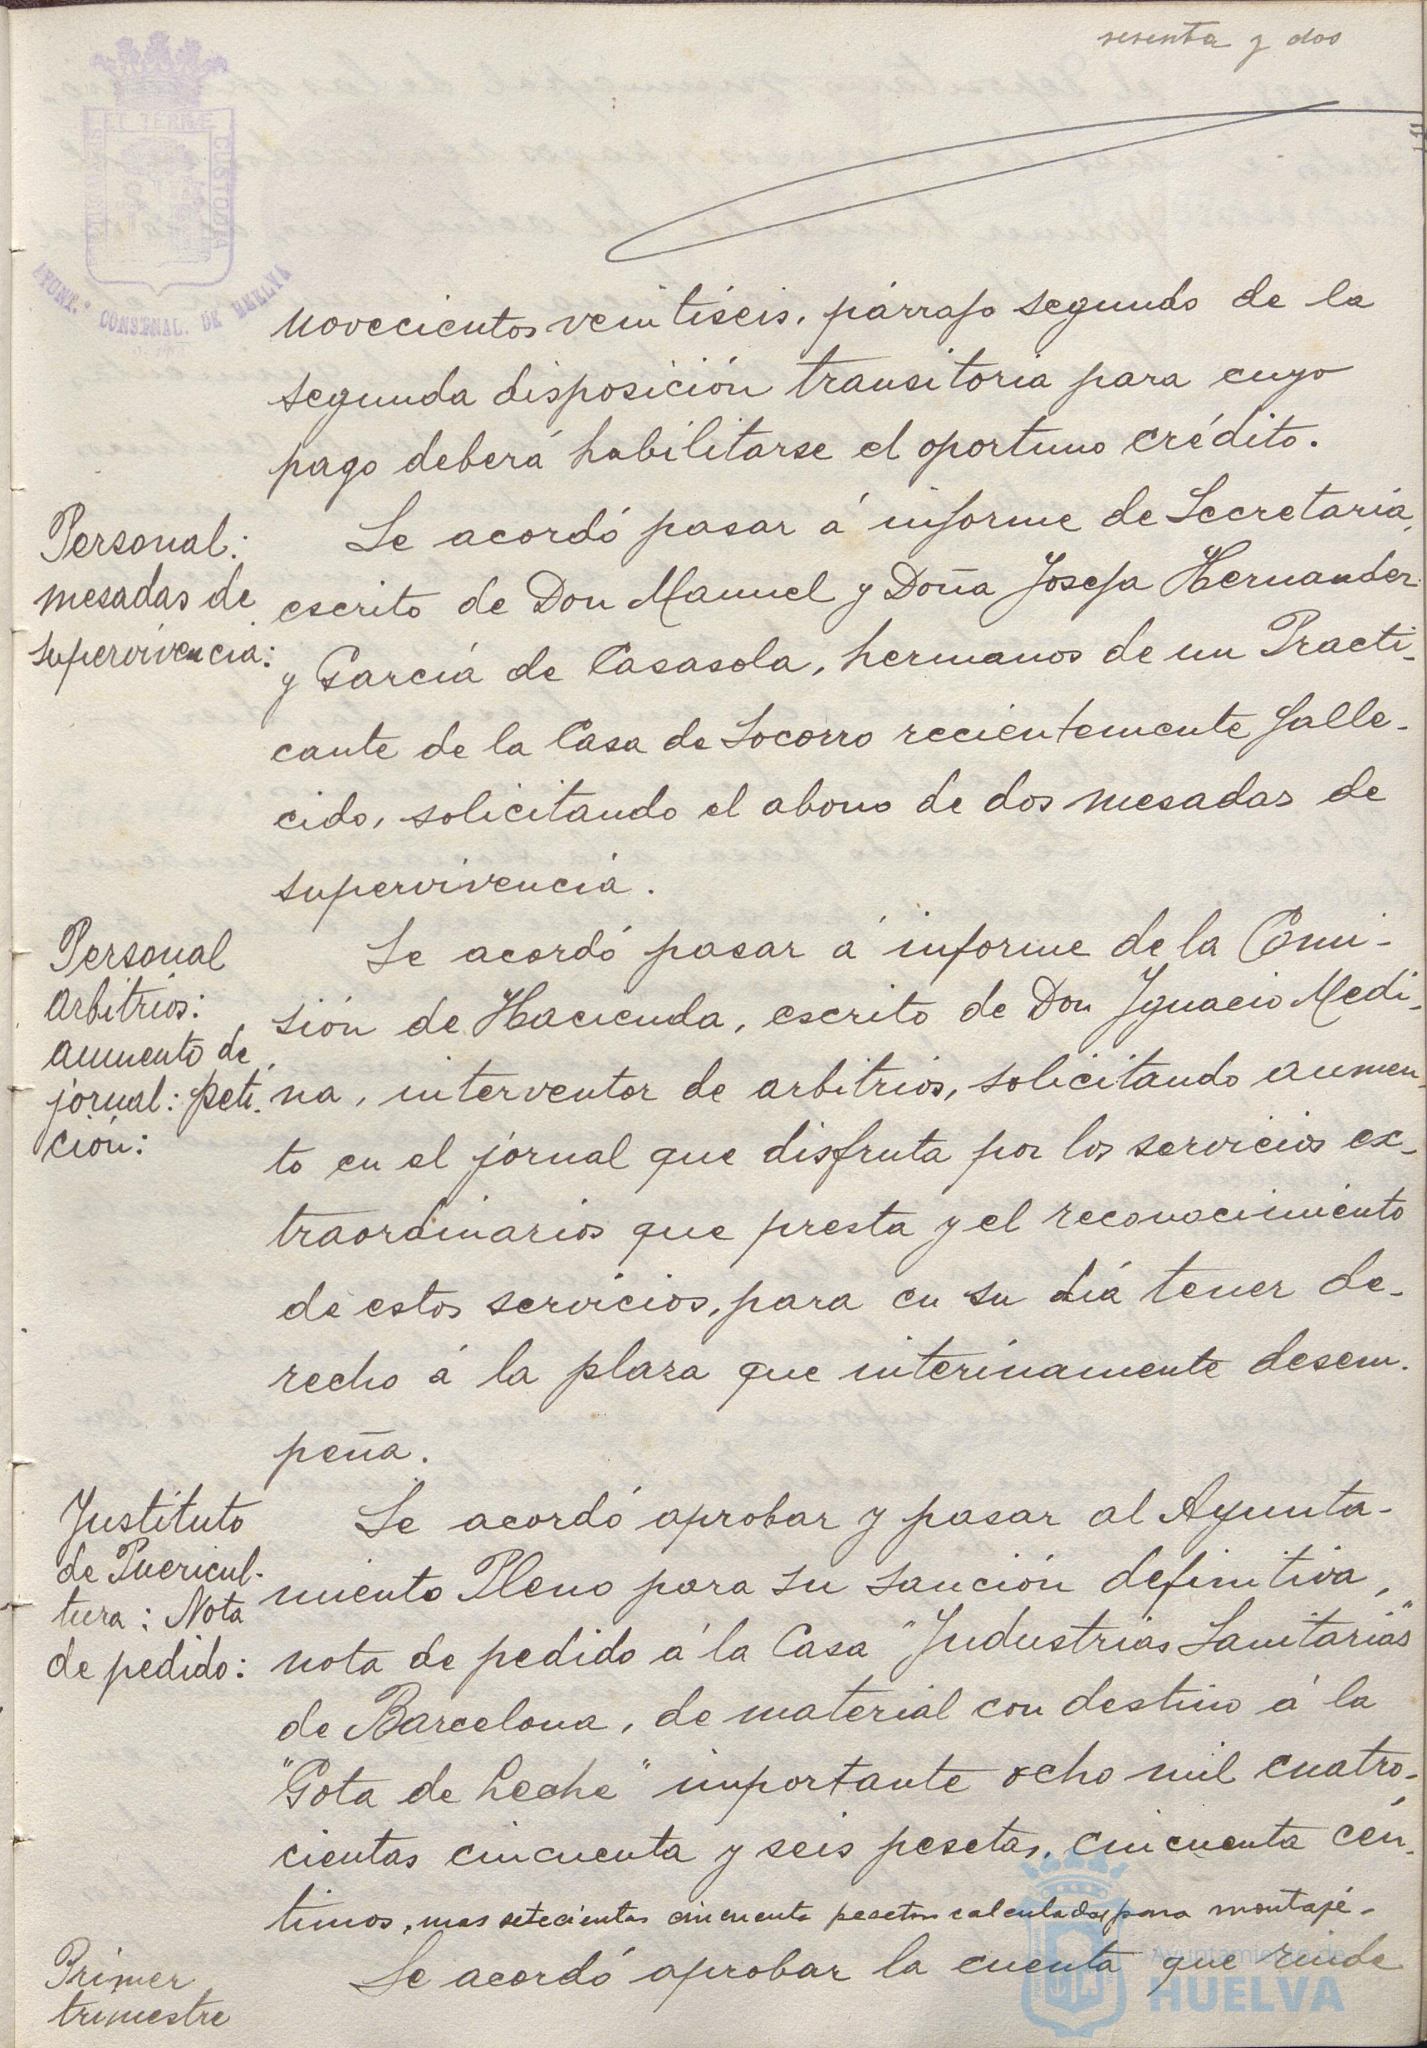 sesenta y dos
ET TERRE
CUSTODIA
AYUNT.º CONSTNAL. DE HUELVA
novecientos veintiseis, párrafo segundo de la
segunda disposición transitoria para cuyo
pago deberá habilitarse el oportuno crédito.
Personal:
mesadas de
supervivencia:
Se acordó pasar á informe de Secretaria,
escrito de Don Manuel y Doña Josefa Hernandez
y García de Casasola, hermanos de un Practi-
cante de la Casa de Socorro recientemente falle-
cido, solicitando el abono de dos mesadas de
supervivencia.
Personal
arbitrios:
aumento de
jornal: peti-
ción:
Se acordó pasar á informe de la Comi-
sión de Hacienda, escrito de Don Ignacio Medi-
na, interventor de arbitrios, solicitando aumen-
to en el jornal que disfruta por los servicios ex-
traordinarios que presta y el reconocimiento
de estos servicios, para en su día tener de-
recho á la plaza que interinamente desem-
peña.
Instituto
de Puericul-
tura: Nota
de pedido:
Se acordó aprobar y pasar al Ayunta-
miento Pleno para su sanción definitiva,
nota de pedido á la Casa "Industrias Sanitarias"
de Barcelona, de material con destino á la
"Gota de Leche" importante ocho mil cuatro-
cientas cincuenta y seis pesetas, cincuenta cén-
timos, mas setecientas cincuenta pesetas calculadas para montaje.
Primer
trimestre
Se acordó aprobar la cuenta que rinde
Ayuntamiento de
HUELVA